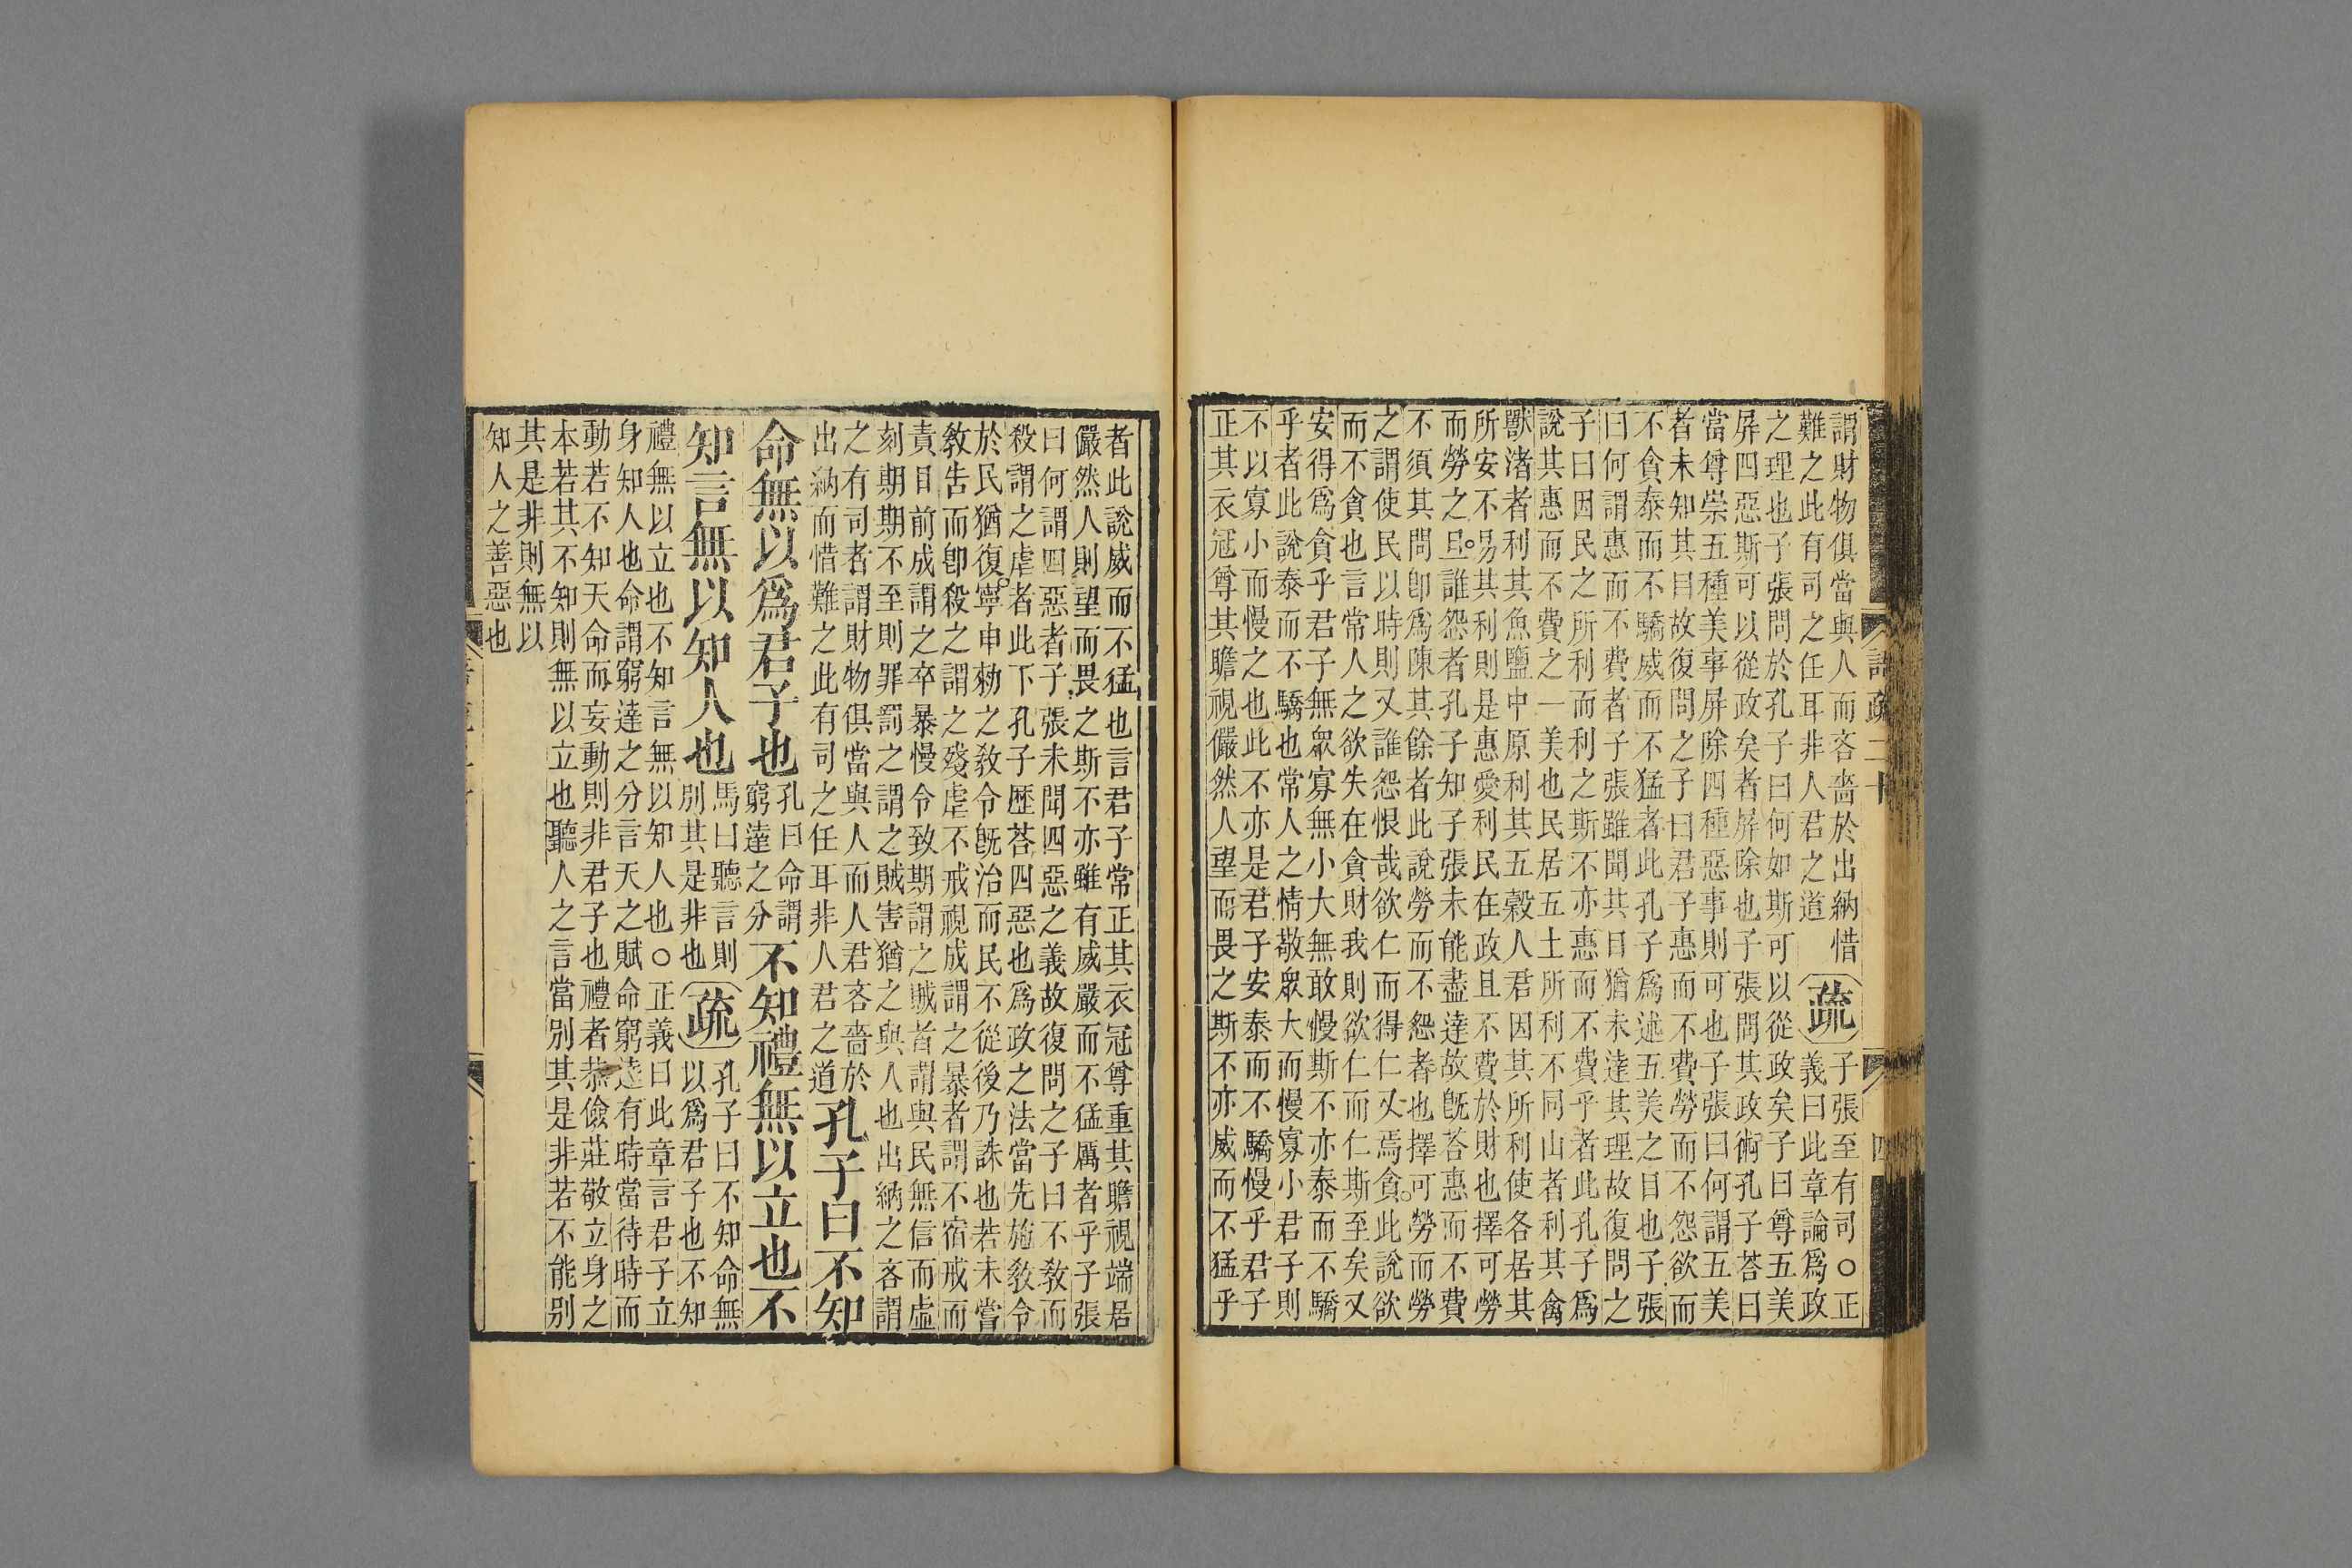 謂財物俱當與人而吝嗇於出納惜
難之此有司之任耳非人君之道
疏
子張至有司○正
義曰此章論爲政
之理也子張問於孔子曰何如斯可以從政矣子曰尊五美
屏四惡斯可以從政矣者屏除也子張問其政術孔子荅曰
當尊崇五種美事屏除四種惡事則可也子張曰何謂五美
者未知其目故復問之子曰君子惠而不費勞而不怨欲而
不貪泰而不驕威而不猛者此孔子爲述五美之目也子張
曰何謂惠而不費者子張雖聞其目猶未達其理故復問之
子曰因民之所利而利之斯不亦惠而不費乎者此孔子爲
說其惠而不費之一美也民居五土所利不同山者利其禽
獸渚者利其魚鹽中原利其五穀人君因其所利使各居其
所安不易其利則是惠愛利民在政且不費於財也擇可勞
而勞之旦誰怨者孔子知子張未能盡達故旣荅惠而不費
不須其問卽爲陳其餘者此說勞而不怨者也擇可勞而勞
之謂使民以時則又誰怨恨哉欲仁而得仁又焉貪此說欲
而不貪也言常人之欲失在貪財我則欲仁而仁斯至矣又
安得爲貪乎君子無衆寡無小大無敢慢斯不亦泰而不驕
乎者此說泰而不驕也常人之情敬衆大而慢寡小君子則
不以寡小而慢之也此不亦是君子安泰而不驕慢乎君子
正其衣冠尊其瞻視儼然人望而畏之斯不亦威而不猛乎
者此說威而不猛也言君子常正其衣冠尊重其瞻視端居
儼然人則望而畏之斯不亦雖有威嚴而不猛厲者乎子張
曰何謂四惡者子張未聞四惡之義故復問之子曰不敎而
殺謂之虐者此下孔子歷荅四惡也爲政之法當先施敎令
於民猶復寧申勑之敎令旣治而民不從後乃誅也若未嘗
敎告而卽殺之謂之殘虐不戒視成謂之暴者謂不宿戒而
責目前成謂之卒暴慢令致期謂之賊者謂與民無信而虛
刻期期不至則罪罰之謂之賊害猶之與人也出納之吝謂
之有司者謂財物俱當與人而人君吝嗇於
出納而惜難之此有司之任耳非人君之道
孔子曰不知
命無以爲君子也
孔曰命謂
窮達之分
不知禮無以立也不
知言無以知人也
馬曰聽言則
別其是非也
疏
孔子曰不知命無
以爲君子也不知
禮無以立也不知言無以知人也○正義曰此章言君子立
身知人也命謂窮達之分言天之賦命窮達有時當待時而
動若不知天命而妄動則非君子也禮者恭儉莊敬立身之
本若其不知則無以立也聽人之言當別其是非若不能別
其是非則無以
知人之善惡也